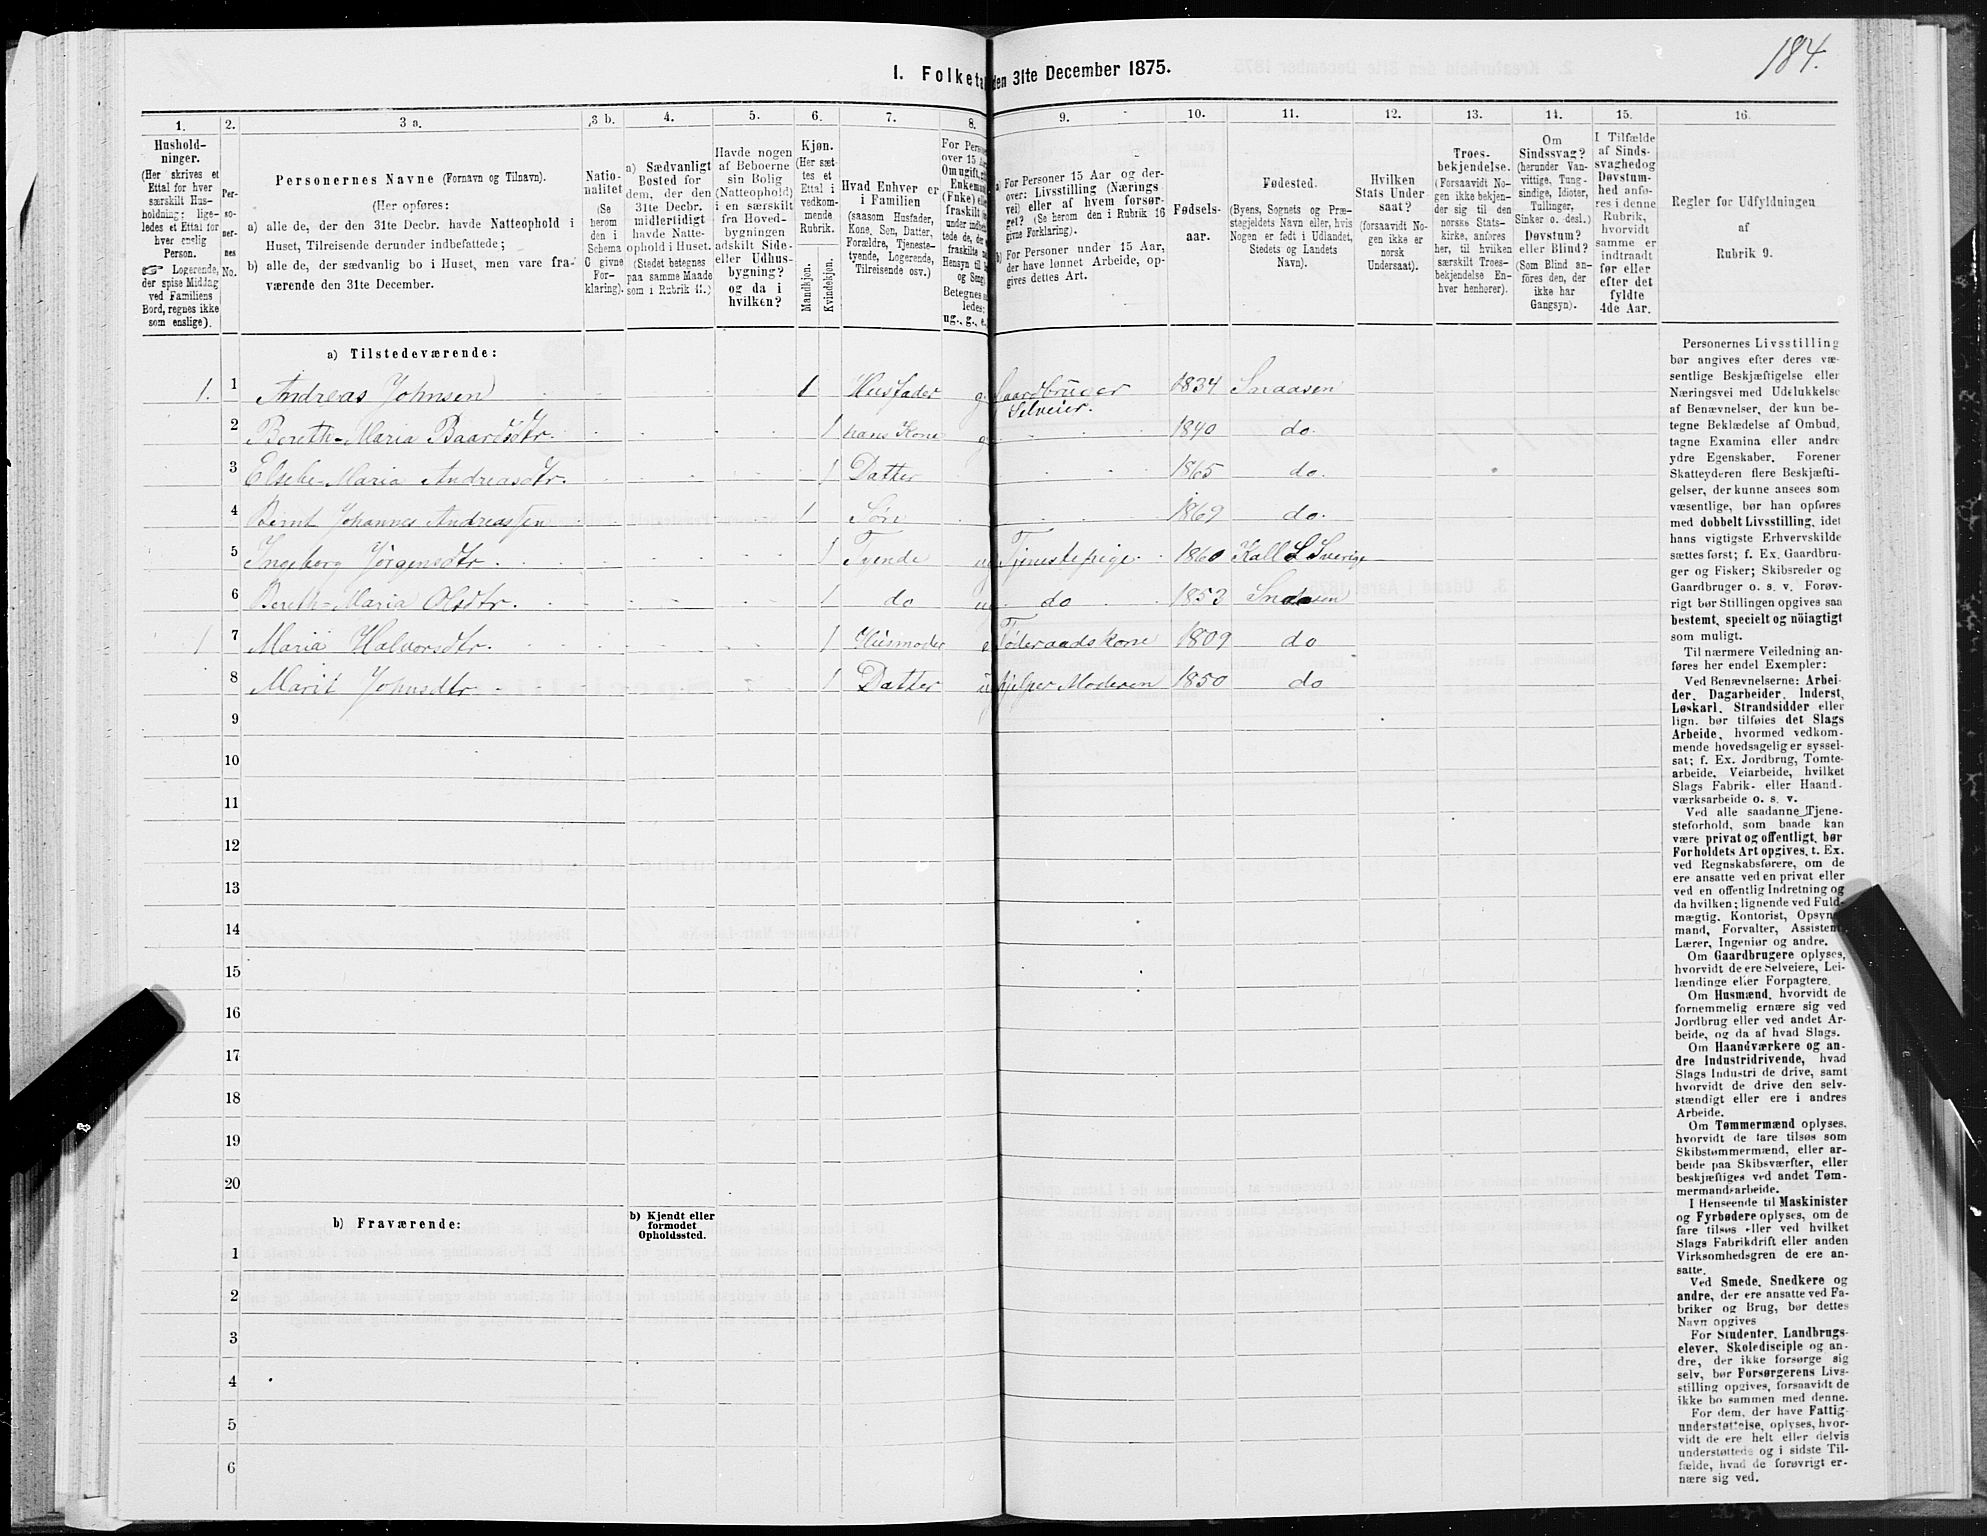 184.
1. Folketæ den 31te December 1875.
1. 2. 3 a. 3 b. 4. 5. 6. 7. 8. 9. 10. 11. 12. 13. 14. 15. 16.
Hushold-
ninger.
(Her skrives et
Ettal for hver
særskilt Hus-
holdning; lige-
ledes et Ettal for
hver enslig
Person.
☞ Logerende,
der spise Middag
ved Familiens
Bord, regnes ikke
som enslige).
Per-
so-
ner-
nes
No.
Personernes Navne (Fornavn og Tilnavn).
(Her opføres:
a) alle de, der den 31te Decbr. havde Natteophold i
Huset, Tilreisende derunder indbefattede;
b) alle de, der sædvanlig bo i Huset, men vare fra-
værende den 31te December.
Natio-
nalitet
(Se
herom
den i
Schema
C givne
For-
klaring).
a) Sædvanligt
Bosted for
dem, der den
31te Decbr.
midlertidigt
havde Natte-
ophold i Huset.
(Stedet betegnes
paa samme Maade
som i Rubrik 11.)
Havde nogen
af Beboerne
sin Bolig
(Natteophold)
i en særskilt
fra Hoved-
bygningen
adskilt Side-
eller Udhus-
bygning?
og da i
hvilken?
Kjøn.
(Her sæt-
tes et
Ettal i
vedkom-
mende
Rubrik.
Mandkjøn.
Kvindekjøn.
Hvad Enhver er
i Familien
(saasom Husfader,
Kone, Søn, Datter,
Forældre, Tjeneste-
tyende, Logerende,
Tilreisende osv.)
For Perso
over 15 Aar
Om ugift, gi
Enkema
(Fnke) elle
fraskilt
Betegnes s
ledes:
ug., g., e.
a) For Personer 15 Aar og der-
over: Livsstilling (Nærings-
vei) eller af hvem forsør-
get? (Se herom den i Rubrik 16
givne Forklaring).
b) For Personer under 15 Aar,
der have lønnet Arbeide, op-
gives dettes Art.
Fødsels-
aar.
Fødested.
(Byens, Sognets og Præ-
stegjeldets Navn eller, hvis
Nogen er født i Udlandet,
Stedets og Landets
Navn).
Hvilken
Stats Under
saat?
(forsaavidt No-
gen ikke er
norsk
Undersaat).
Troes-
bekjendelse.
(Forsaavidt No-
gen ikke bekjen-
der sig til den
norske Stats-
kirke, anføres
her, til hvilken
særskilt Troes-
bekjendelse En-
hver henhører).
Om
Sindssvag?
(herunder Van-
vittige, Tung-
sindige, Idioter,
Tullinger,
Sinker o. desl.)
Døvstum?
eller Blind?
(Som Blind an-
føres den, der
ikke har
Gangsyn).
I Tilfælde
af Sinds-
svaghedog
Døvstum-
hed anfø-
res i denne
Rubrik,
hvorvidt
samme er
indtraadt
før eller
efter det
fyldte
4de Aar.
Regler for Udfyldningen
af
Rubrik 9.
a) Tilstedeværende:
1. 1 Andreas Johnsen 1 Husfader g. Gaardbruger Selveier. 1834 Snaasen
2 Bereth-Maria Baardsdtr. 1 hans Kone g 1840 do.
3 Elsebe-Maria Andreasdtr. 1 Datter 1865 do.
4 Bernt Johannes Andreassen 1 Søn 1869 do.
5 Ingeborg Jørgensdtr. 1 Tyende ug Tjenestepige 1860 Kall S Sverige
6 Bereth-Maria Olsdtr. 1 do u do 1853 Snaasen
1 7 Maria Halvorsdtr. 1 Husmoder e Føderaadskone 1809 do
8 Marit Johnsdtr. 1 Datter ug hjelper Moderen 1850 do
9
10
11
12
13
14
15
16
17
18
19
20
b) Fraværende:
b) Kjendt eller
formodet
Opholdssted.
1
2
3
4
5
6
Personernes Livsstilling
bør angives efter deres væ-
sentlige Beskjæftigelse eller
Næringsvei med Udelukkelse
af Benævnelser, der kun be-
tegne Beklædelse af Ombud,
tagne Examina eller andre
ydre Egenskaber. Forener
Skatteyderen flere Beskjæfti-
gelser, der kunne ansees som
væsentlige, bør han opføres
med dobbelt Livsstilling, idet
hans vigtigste Erhvervskilde
sættes først; f. Ex. Gaardbru-
ger og Fisker; Skibsreder og
Gaardbruger o. s. v. Forøv-
rigt bør Stillingen opgives saa
bestemt, specielt og nöiagtigt
som muligt.
Til nærmere Veiledning an-
føres her endel Exempler:
Ved Benævnelserne: Arbei-
der, Dagarbeider, Inderst,
Løskarl, Strandsidder eller
lign. bør tilføies det Slags
Arbeide, hvormed vedkom-
mende hovedsagelig er syssel-
sat; f. Ex. Jordbrug, Tomte-
arbeide, Veiarbeide, hvilket
Slags Fabrik- eller Haand-
værksarbeide o. s. v.
Ved alle saadanne Tjene-
steforhold, som baade kan
være privat og offentligt, bør
Forholdets Art opgives, t. Ex.
ved Regnskabsførere, om de
ere ansatte ved en privat eller
ved en offentlig Indretning og
da hvilken; lignende ved Fuld-
mægtig, Kontorist, Opsyns-
mand, Forvalter, Assistent,
Lærer, Ingeniør og andre.
Om Gaardbrugere oplyses,
hvorvidt de ere Selveiere, Lei-
lændinge eller Forpagtere.
Om Husmænd, hvorvidt de
fornemmelig ernære sig ved
Jordbrug eller ved andet Ar-
beide, og da af hvad Slags.
Om Haandværkere og an-
dre Industridrivende, hvad
Slags Industri de drive, samt
hvorvidt de drive den selv-
stændigt eller ere i andres
Arbeide.
Om Tømmermænd oplyses,
hvorvidt de fare tilsøs som
Skibstømmermænd, eller ar-
beide paa Skibsværfter, eller
beskjæftiges ved andet Tøm-
mermandsarbeide.
I Henseende til Maskinister
og Fyrbødere oplyses, om de
fare tilsøs eller ved hvilket
Slags Fabrikdrift eller anden
Virksomhedsgren de ere an-
satte.
Ved Smede, Snedkere og
andre, der ere ansatte ved Fa-
briker og Brug, bør dettes
Navn opgives
For Studenter, Landbrugs-
elever, Skoledisciple og an-
dre, der ikke forsørge sig
selv, bør Forsørgerens Livs-
stilling opgives, forsaavidt de
ikke bo sammen med denne.
For dem, der have Fattig-
understøttelse, oplyses, hvor-
vidt de ere helt eller delvis
understøttede og i sidste Til-
fælde, hvad de forøvrigt er-
nære sig ved.